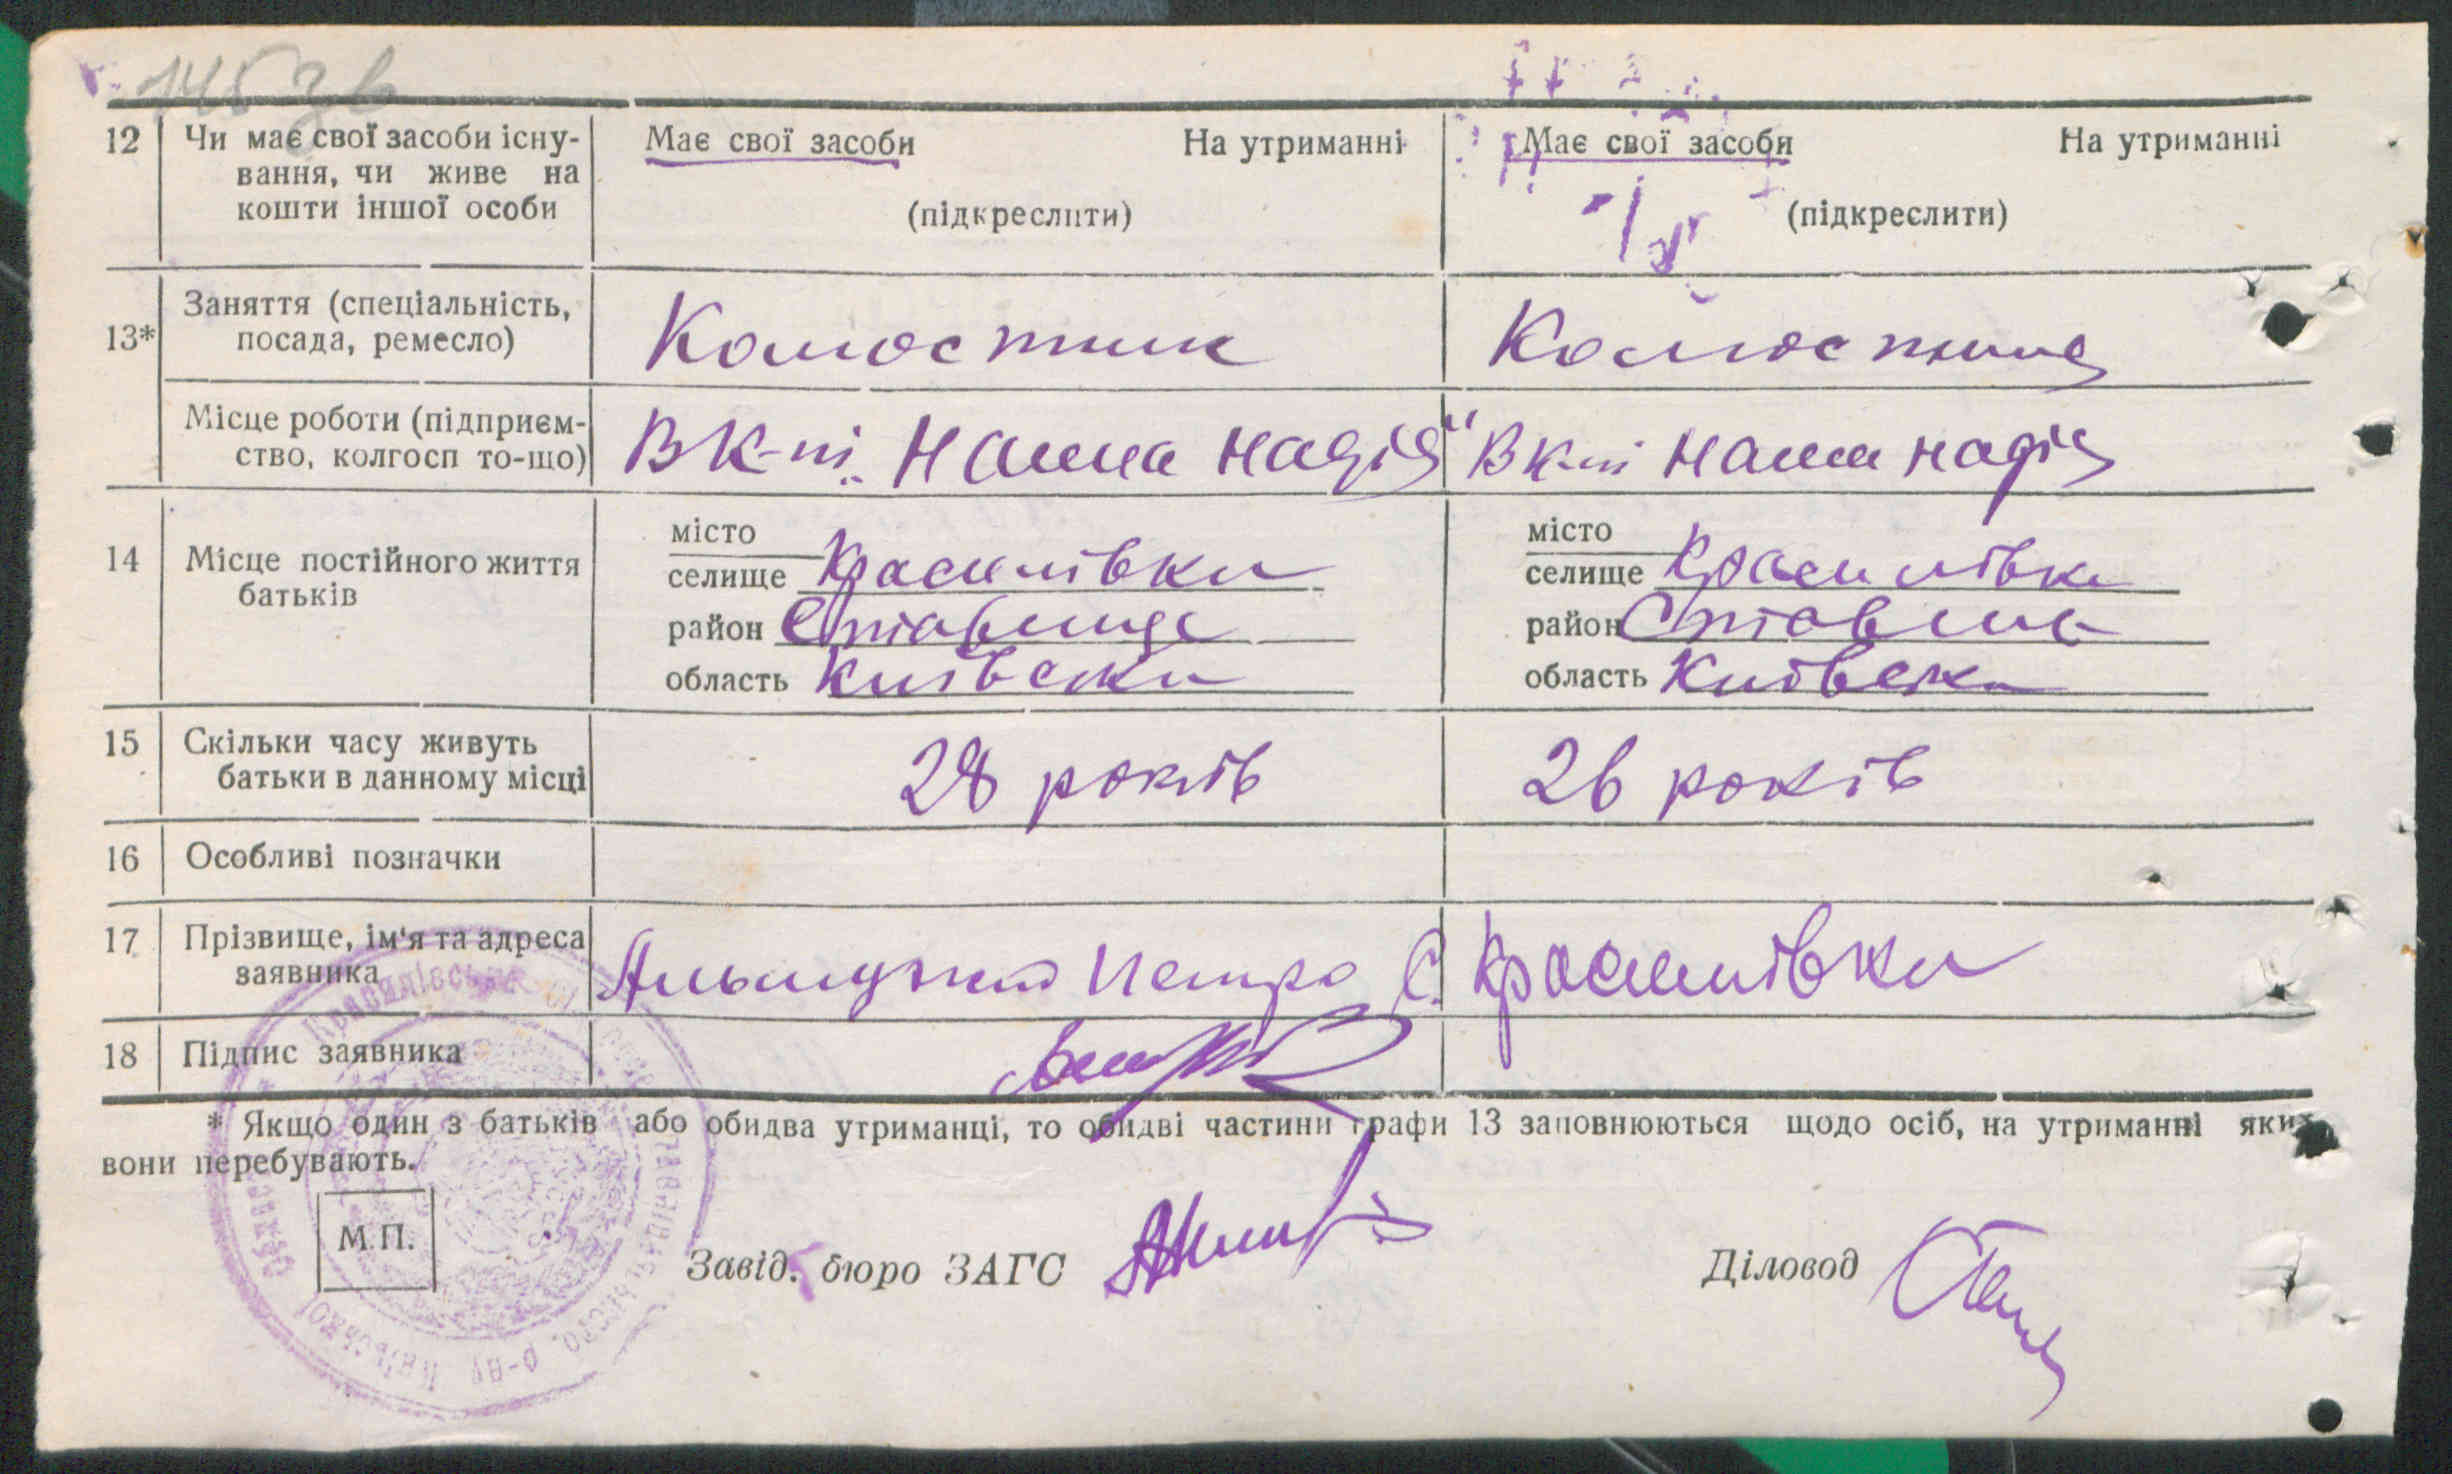 145 зв
12 Чи має свої засоби існу- Має свої засоби На утриманні Має свої засоби На утриманні
вання, чи живе на
кошти іншої особи (підкреслити) (підкреслити)
13* Заняття (спеціальність,
посада, ремесло) Колгостник Колгостниця
Місце роботи (підприєм-
ство, колгосп то-що) В к-пі „Наша надія" В к-пі Наша надія
місто місто
14 Місце постійного життя селище Красилівка селище Красилівка
батьків район Ставище район Ставище
область Київська область Київська
15 Скільки часу живуть
батьки в данному місці 28 років 26 років
16 Особливі позначки
17 Прізвище, ім'я та адреса
заявника Петро С. Красилівка
18 Підпис заявника
* Якщо один з батьків або обидва утриманці, то обидві частини графи 13 заповнюються щодо осіб, на утриманні яких
вони перебувають.
М.П.
Завід. бюро ЗАГС Діловод